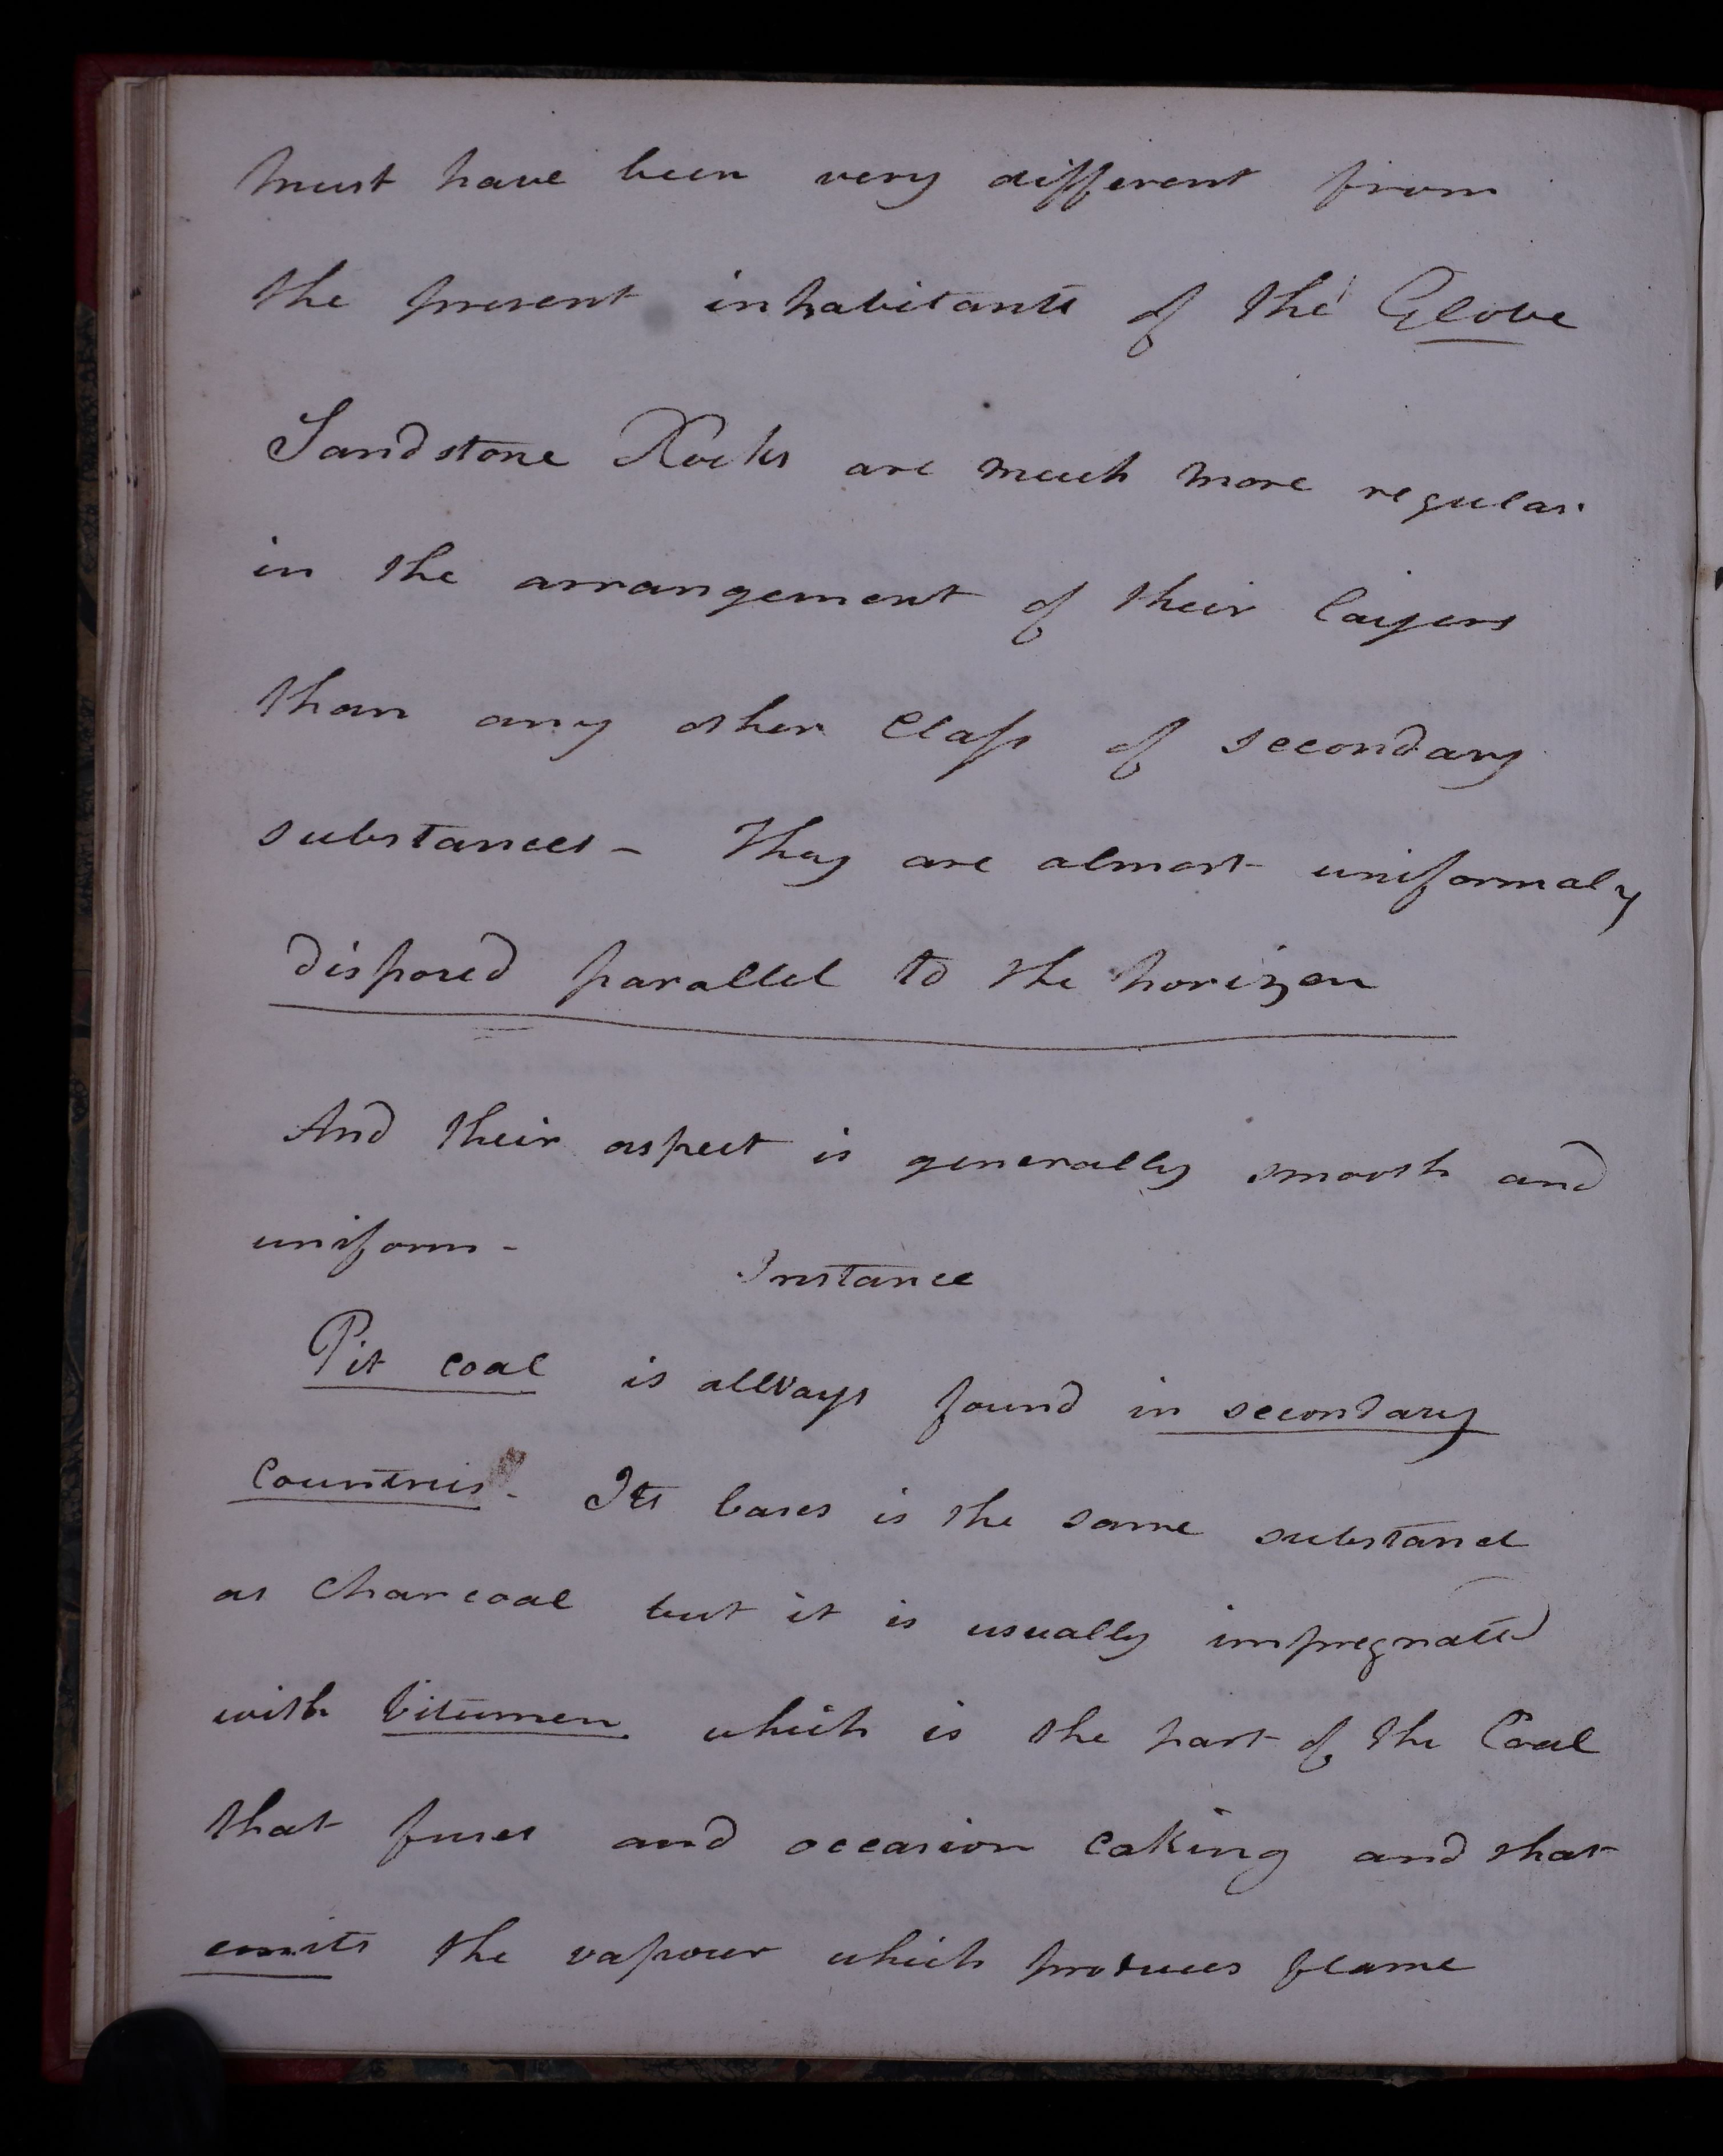 must have been very different from
the present inhabitants of the Globe
Sandstone Rocks are much more regular
in the arrangement of their layers
than any other Class of secondary
substances - They are almost uniformaly
disposed parallel to the horizon
And their aspect is generally smooth and
uniform -
Instance
Pit coal is allways found in secondary
Countries - Its bases is the same substance
as Charcoal but it is usually impregnated
with bitumen which is the part of the Coal
that fuses and occasion caking and that
emits the vapour which produces flame